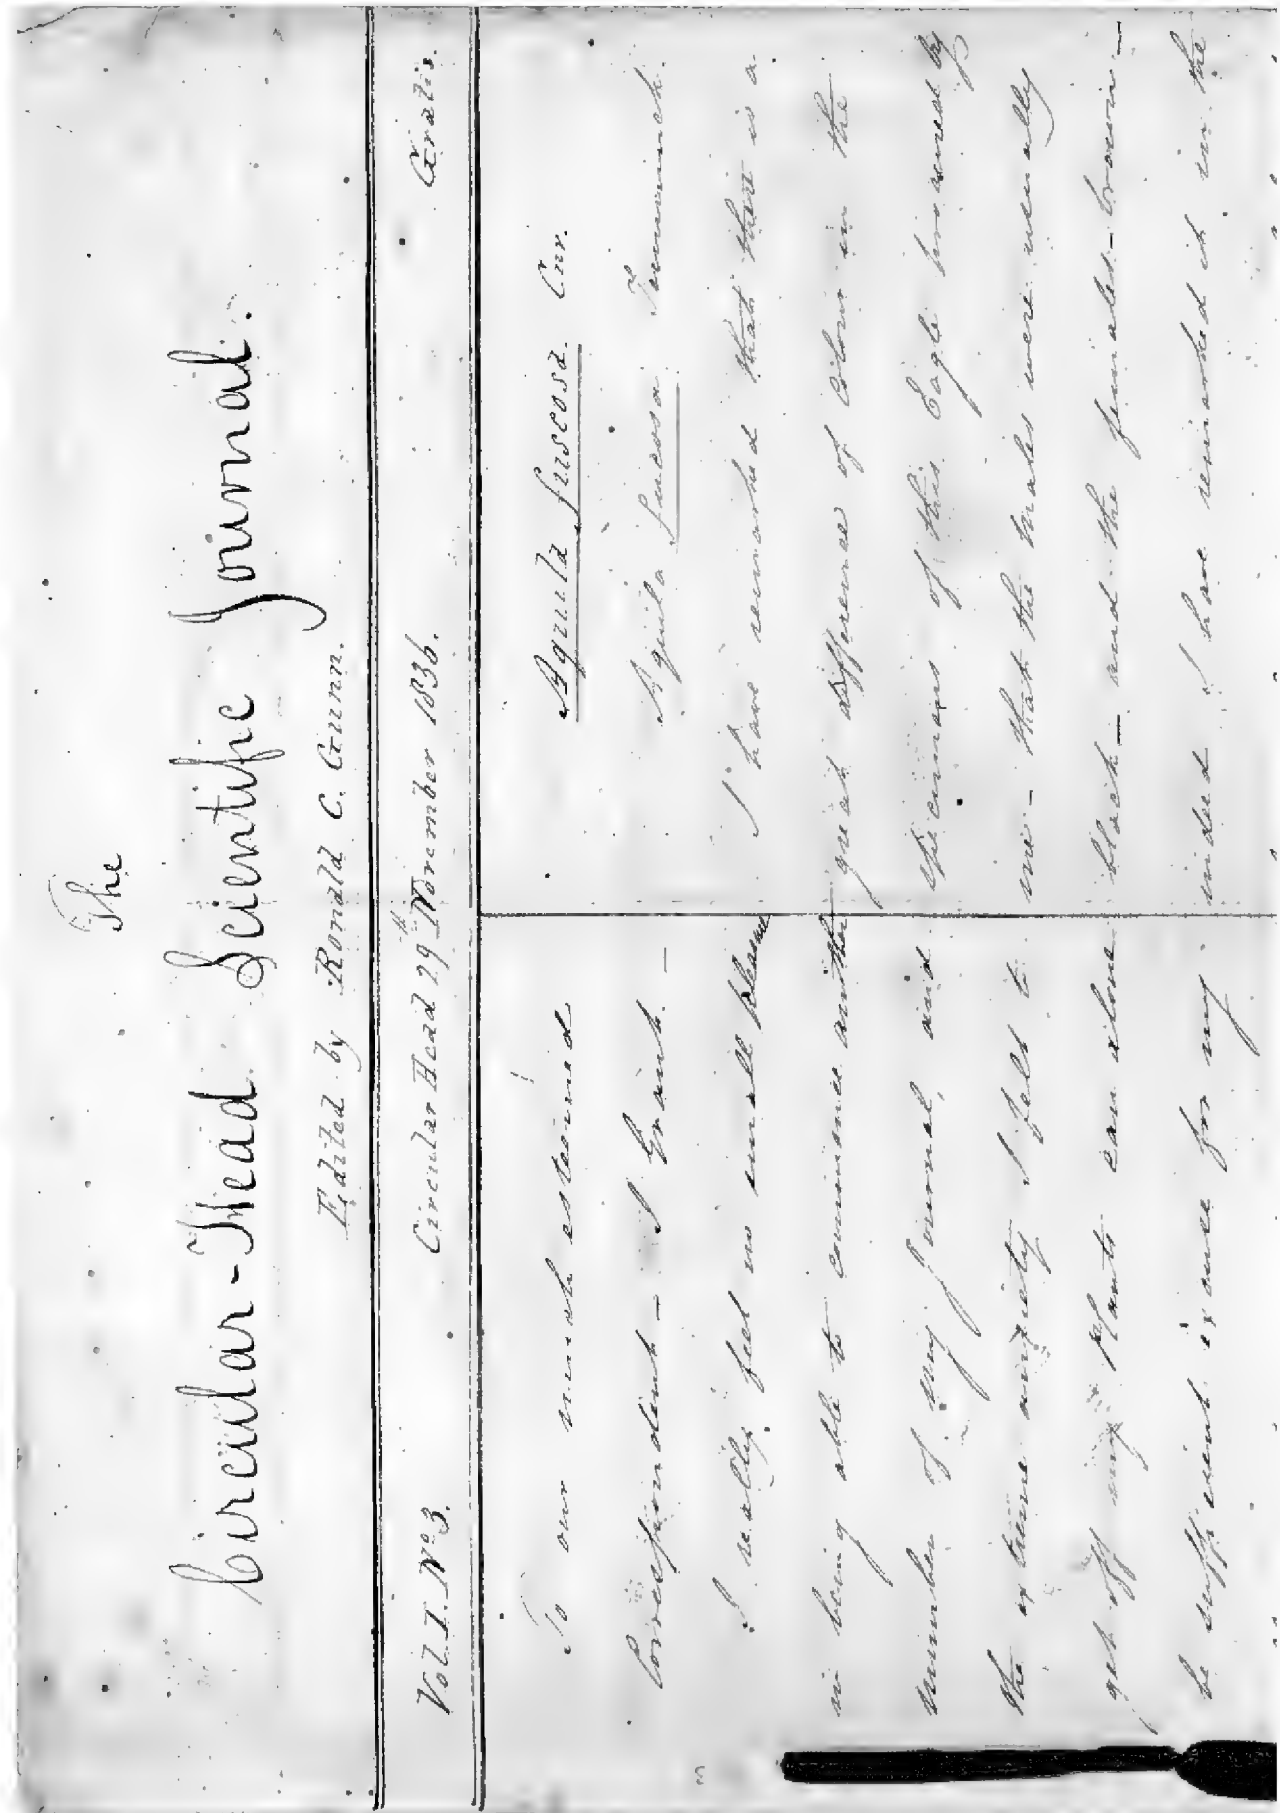 The
Circular-Head Scientific Journal.
Edited by Ronald C. Gunn.
Vol. I. No 3. Circular Head 29th November 1836. Gratis.
To our much esteemed
Correspondent – J Grant. –
I really feel no small pleasure
in being able to commence another
number of my Journal, and
the extreme anxiety I felt to
get off my Plants can alone
be sufficient excuse for my
Aquila fuscosa. Cuv.
Aquila fucosa Temminck.
I have remarked that there is a
great difference of colour in the
specimens of this Eagle procured by
me – that the males were usually
black – and the females – brown –
indeed I have remarked it in the